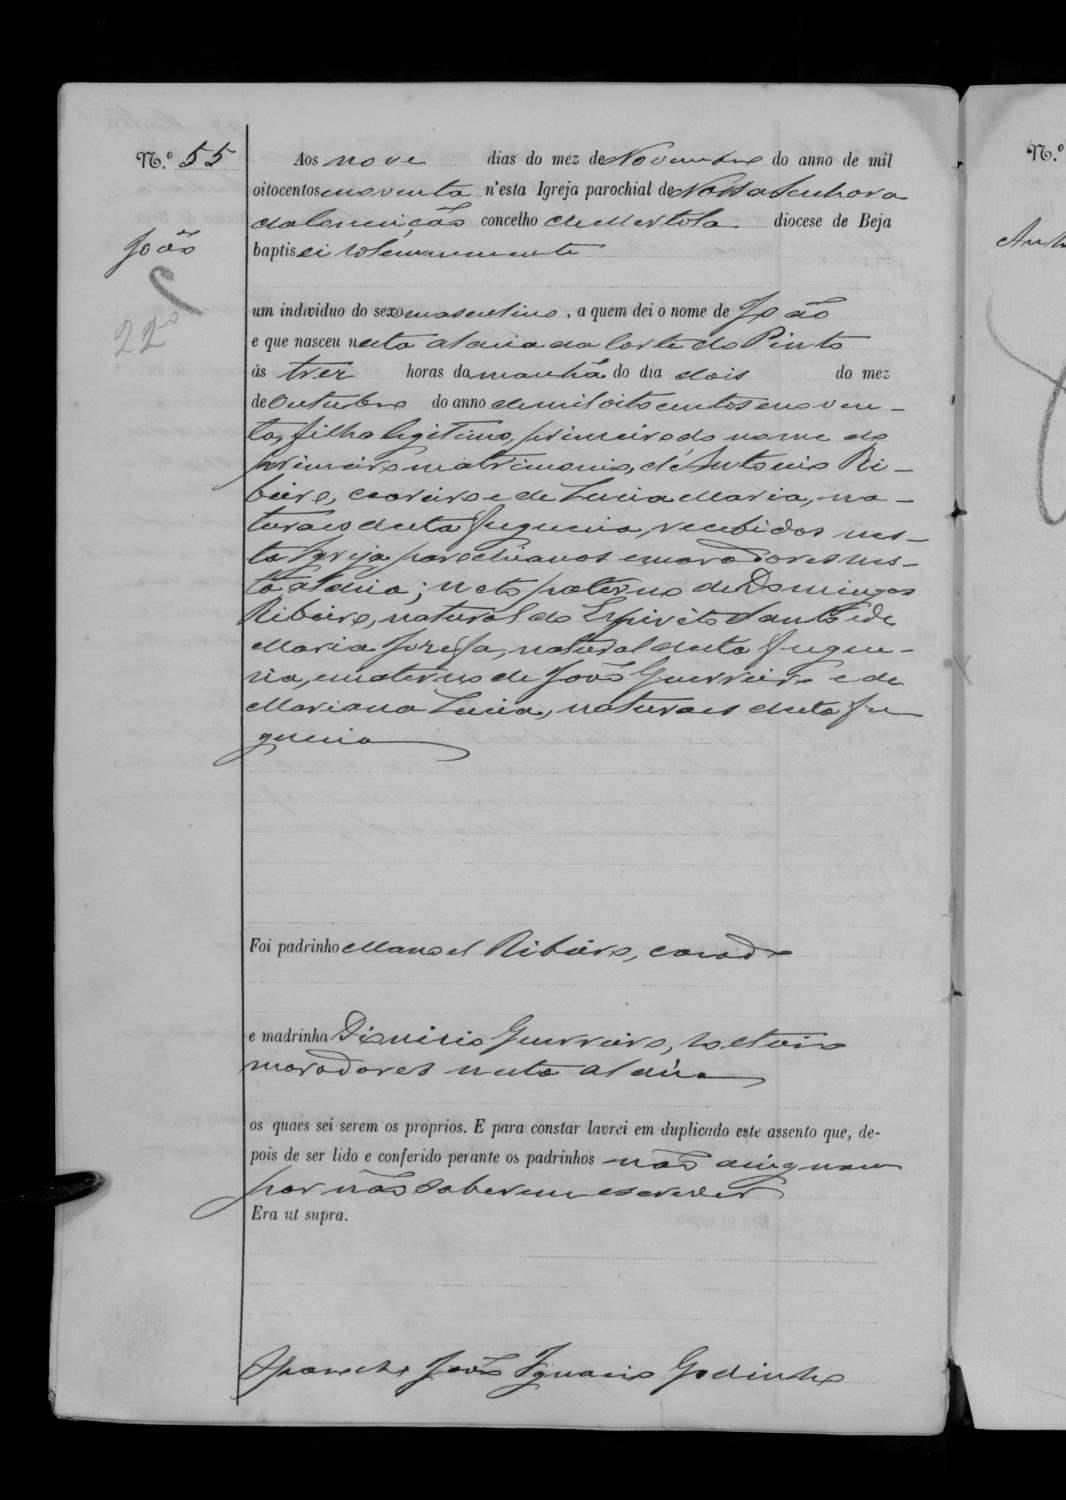 N.º 55
João
22º
Aos nove dias do mez de Novembro do anno de mil
oitocentos e noventa n'esta Igreja parochial de Nossa Senhora
da Conceição concelho de Mertola diocese de Beja
baptisei solemnemente
um individuo do sexo masculino, a quem dei o nome de João
e que nasceu nesta aldeia da Corte do Pinto
ás tres horas da manhã do dia dois do mez
de Outubro do anno de mil oitocentos e noven-
ta, filho legitimo, primeiro do nome do
primeiro matrimonio, de Antonio Ri-
beiro, e de Lucia Maria, na-
turaes desta freguesia, recebidos nes-
ta Igreja, parochianos e moradores nes-
ta aldeia; neto paterno de Domingos
Ribeiro, natural do Espirito Santo e de
Maria Josefa, natural desta fregue-
sia, e materno de João Guerreiro e de
Mariana Lucia, naturaes desta fre
guesia
Foi padrinho Manoel Ribeiro, casado
e madrinha Dionisio Guerreiro, solteiro
moradores nesta aldeia
os quaes sei serem os proprios. E para constar lavrei em duplicado este assento que, de-
pois de ser lido e conferido perante os padrinhos não assignam
por não saberem escrever
Era ut supra.
O parocho João Ignacio Godinho
N.º